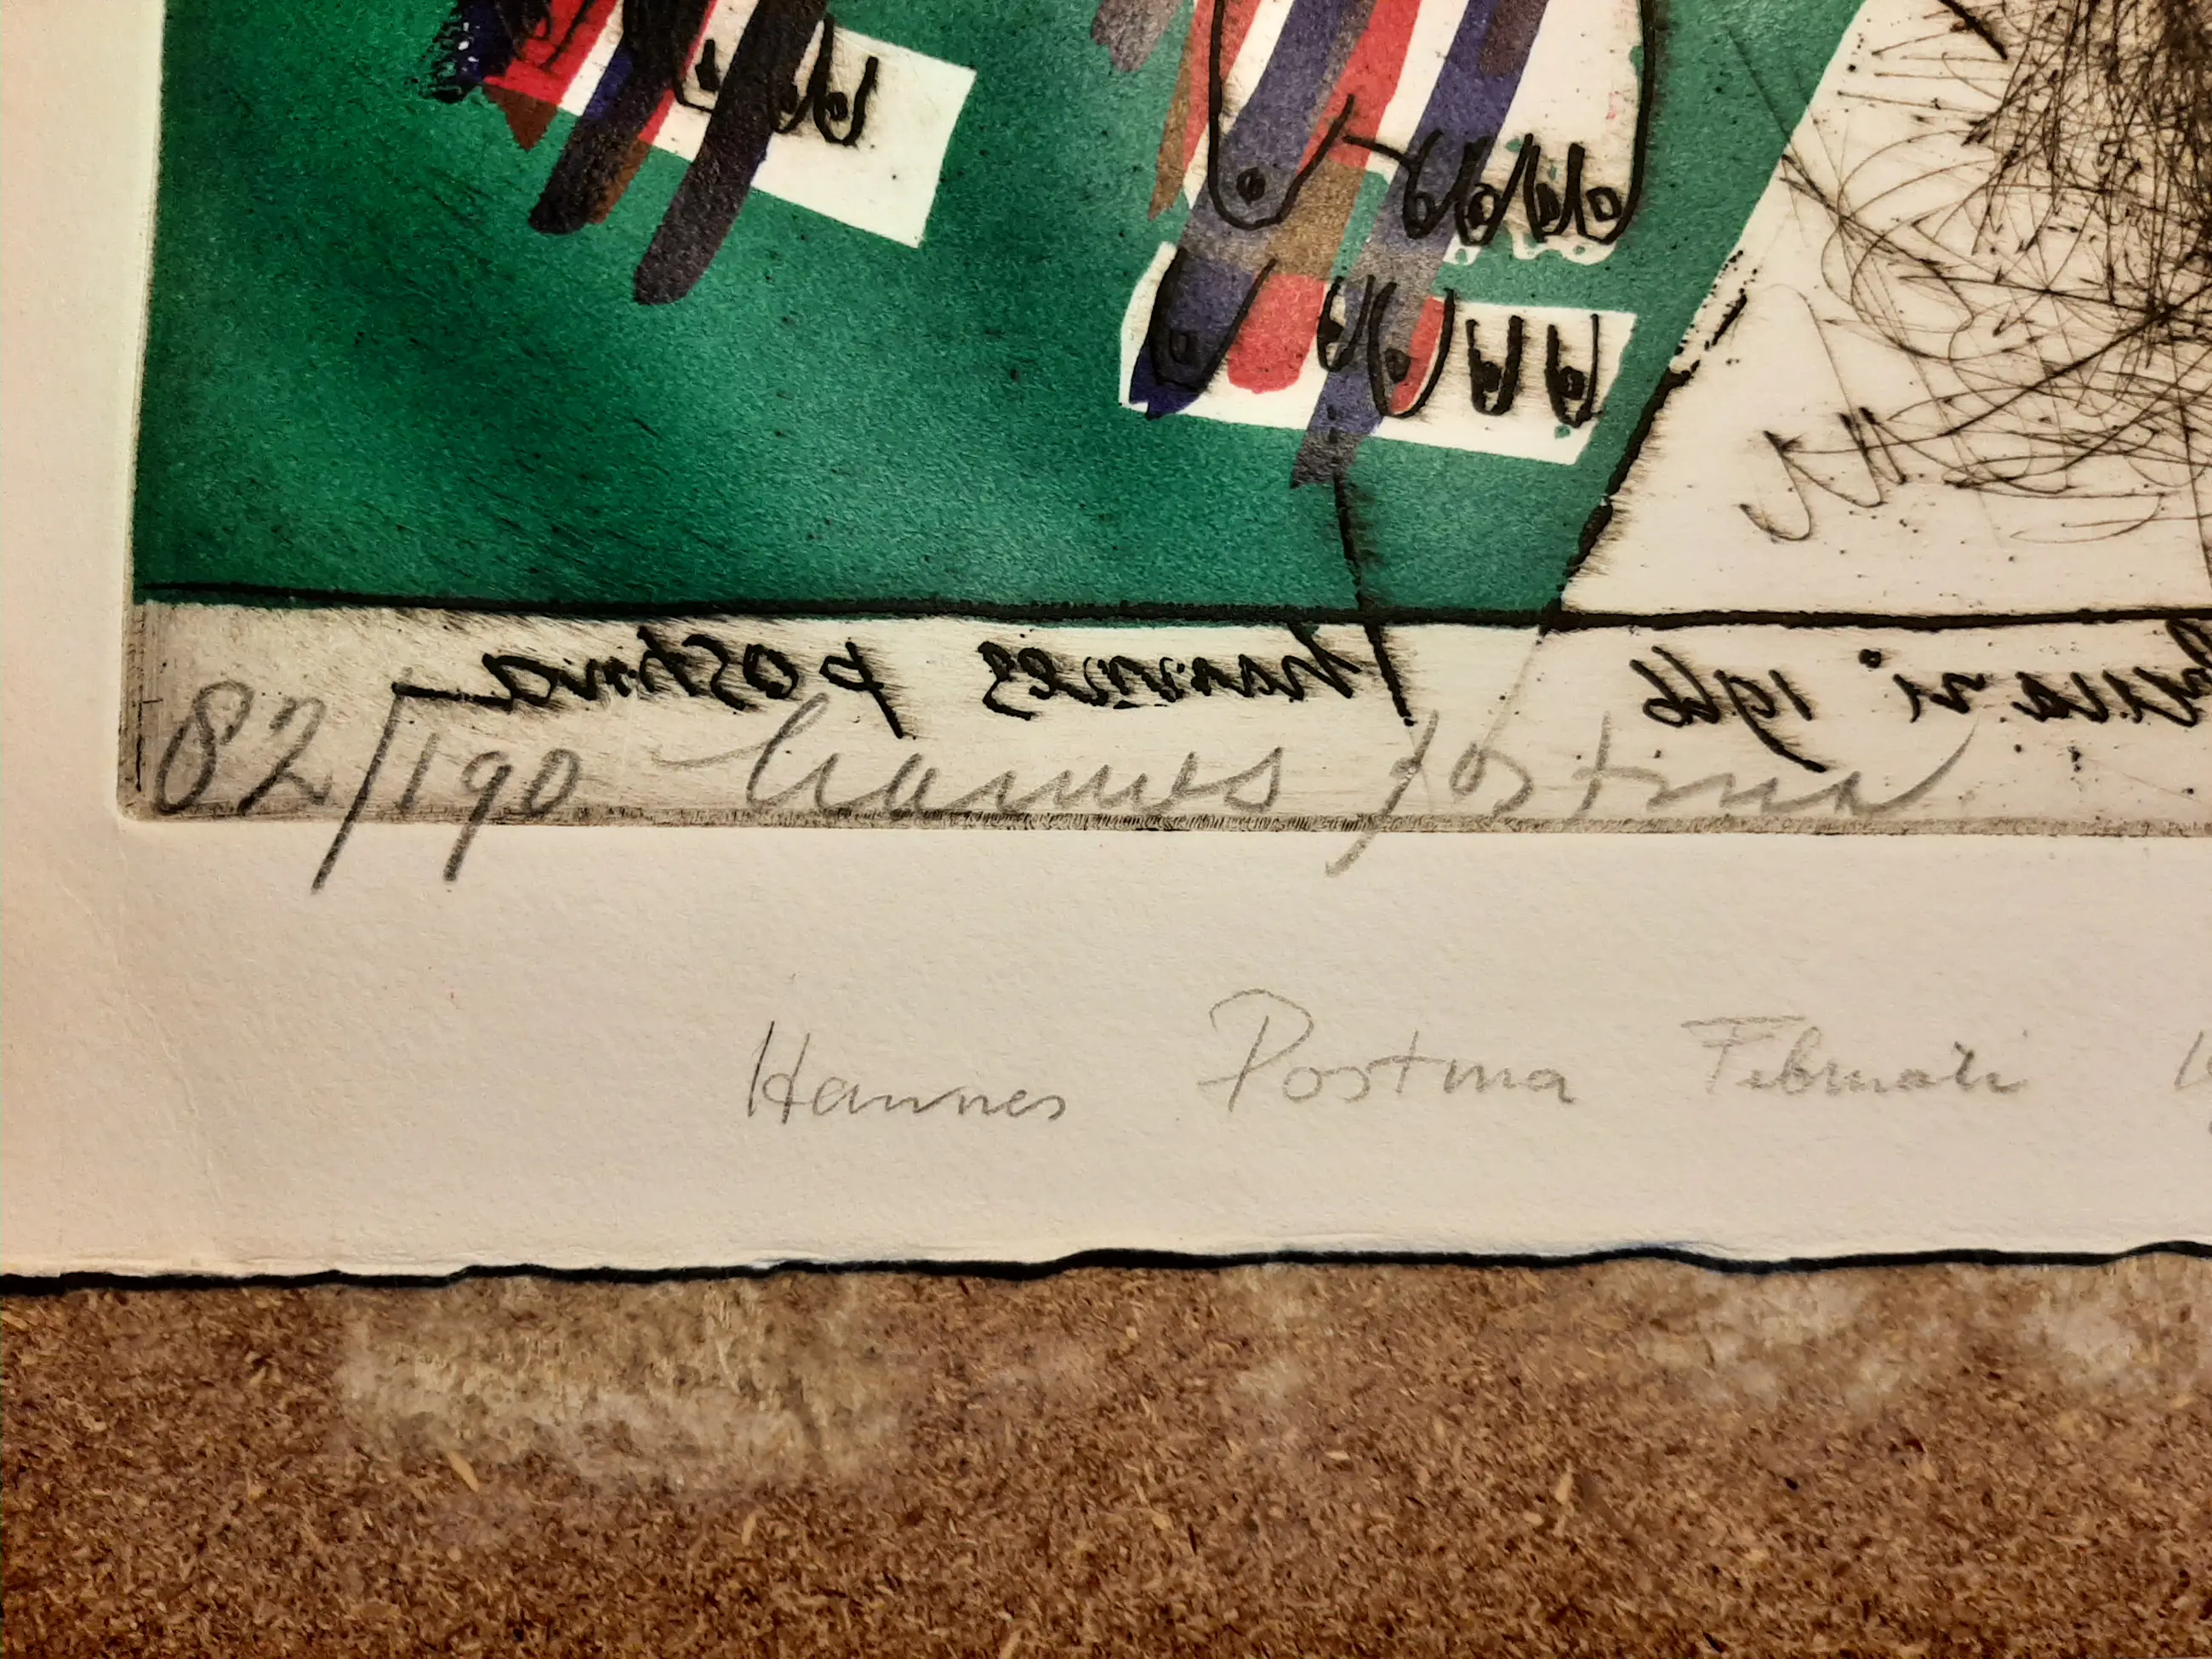 hannes postma 1966
82/190 hannes postma
Hannes Postma Februari